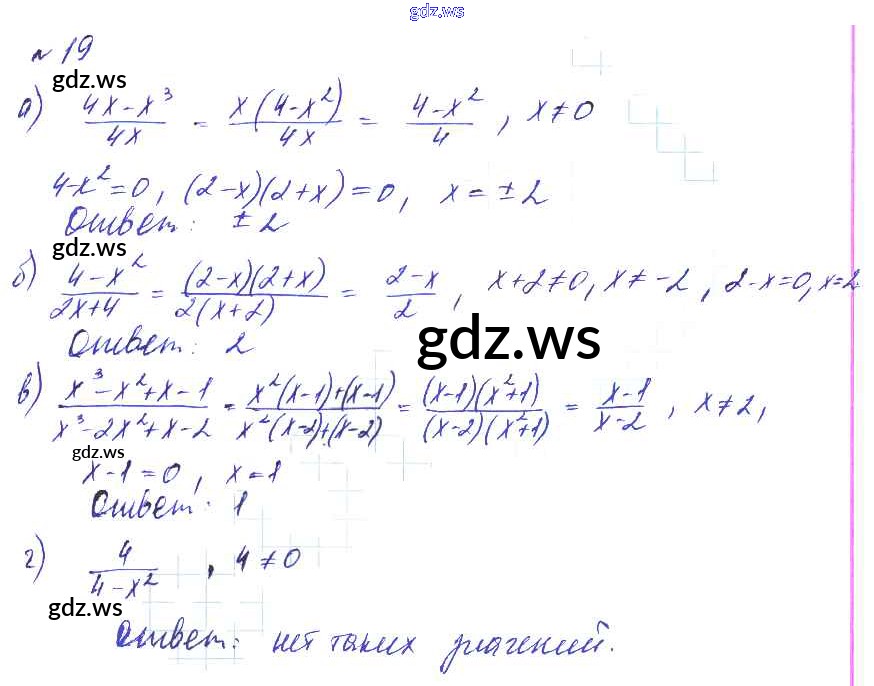 gdz.ws
№ 19
gdz.ws
а) (4x-x³)/4x = x(4-x²)/4x = (4-x²)/4, x≠0
4-x²=0, (2-x)(2+x)=0, x=±2
Ответ: ±2
gdz.ws
б) (4-x²)/(2x+4) = (2-x)(2+x)/2(x+2) = (2-x)/2, x+2≠0, x≠-2, 2-x=0, x=2
Ответ: 2
gdz.ws
в) (x³-x²+x-1)/(x³-2x²+x-2) = (x²(x-1)+(x-1))/(x²(x-2)+(x-2)) = (x-1)(x²+1)/(x-2)(x²+1) = (x-1)/(x-2), x≠2,
gdz.ws
x-1=0, x=1
Ответ: 1
г) 4/(4-x²), 4≠0
gdz.ws
Ответ: нет таких значений.